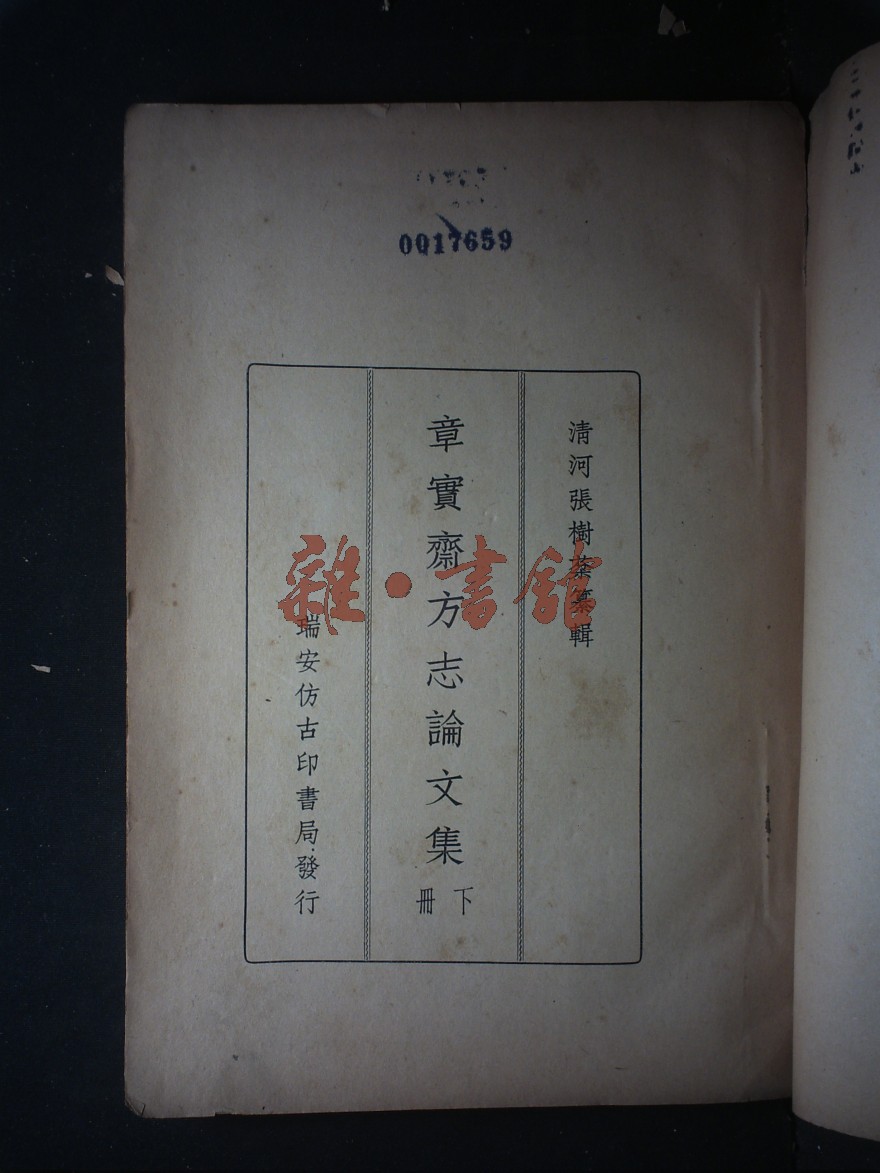 0017659
清河張樹棻纂輯
章實齋方志論文集
下冊
瑞安仿古印書局發行
雜·書館